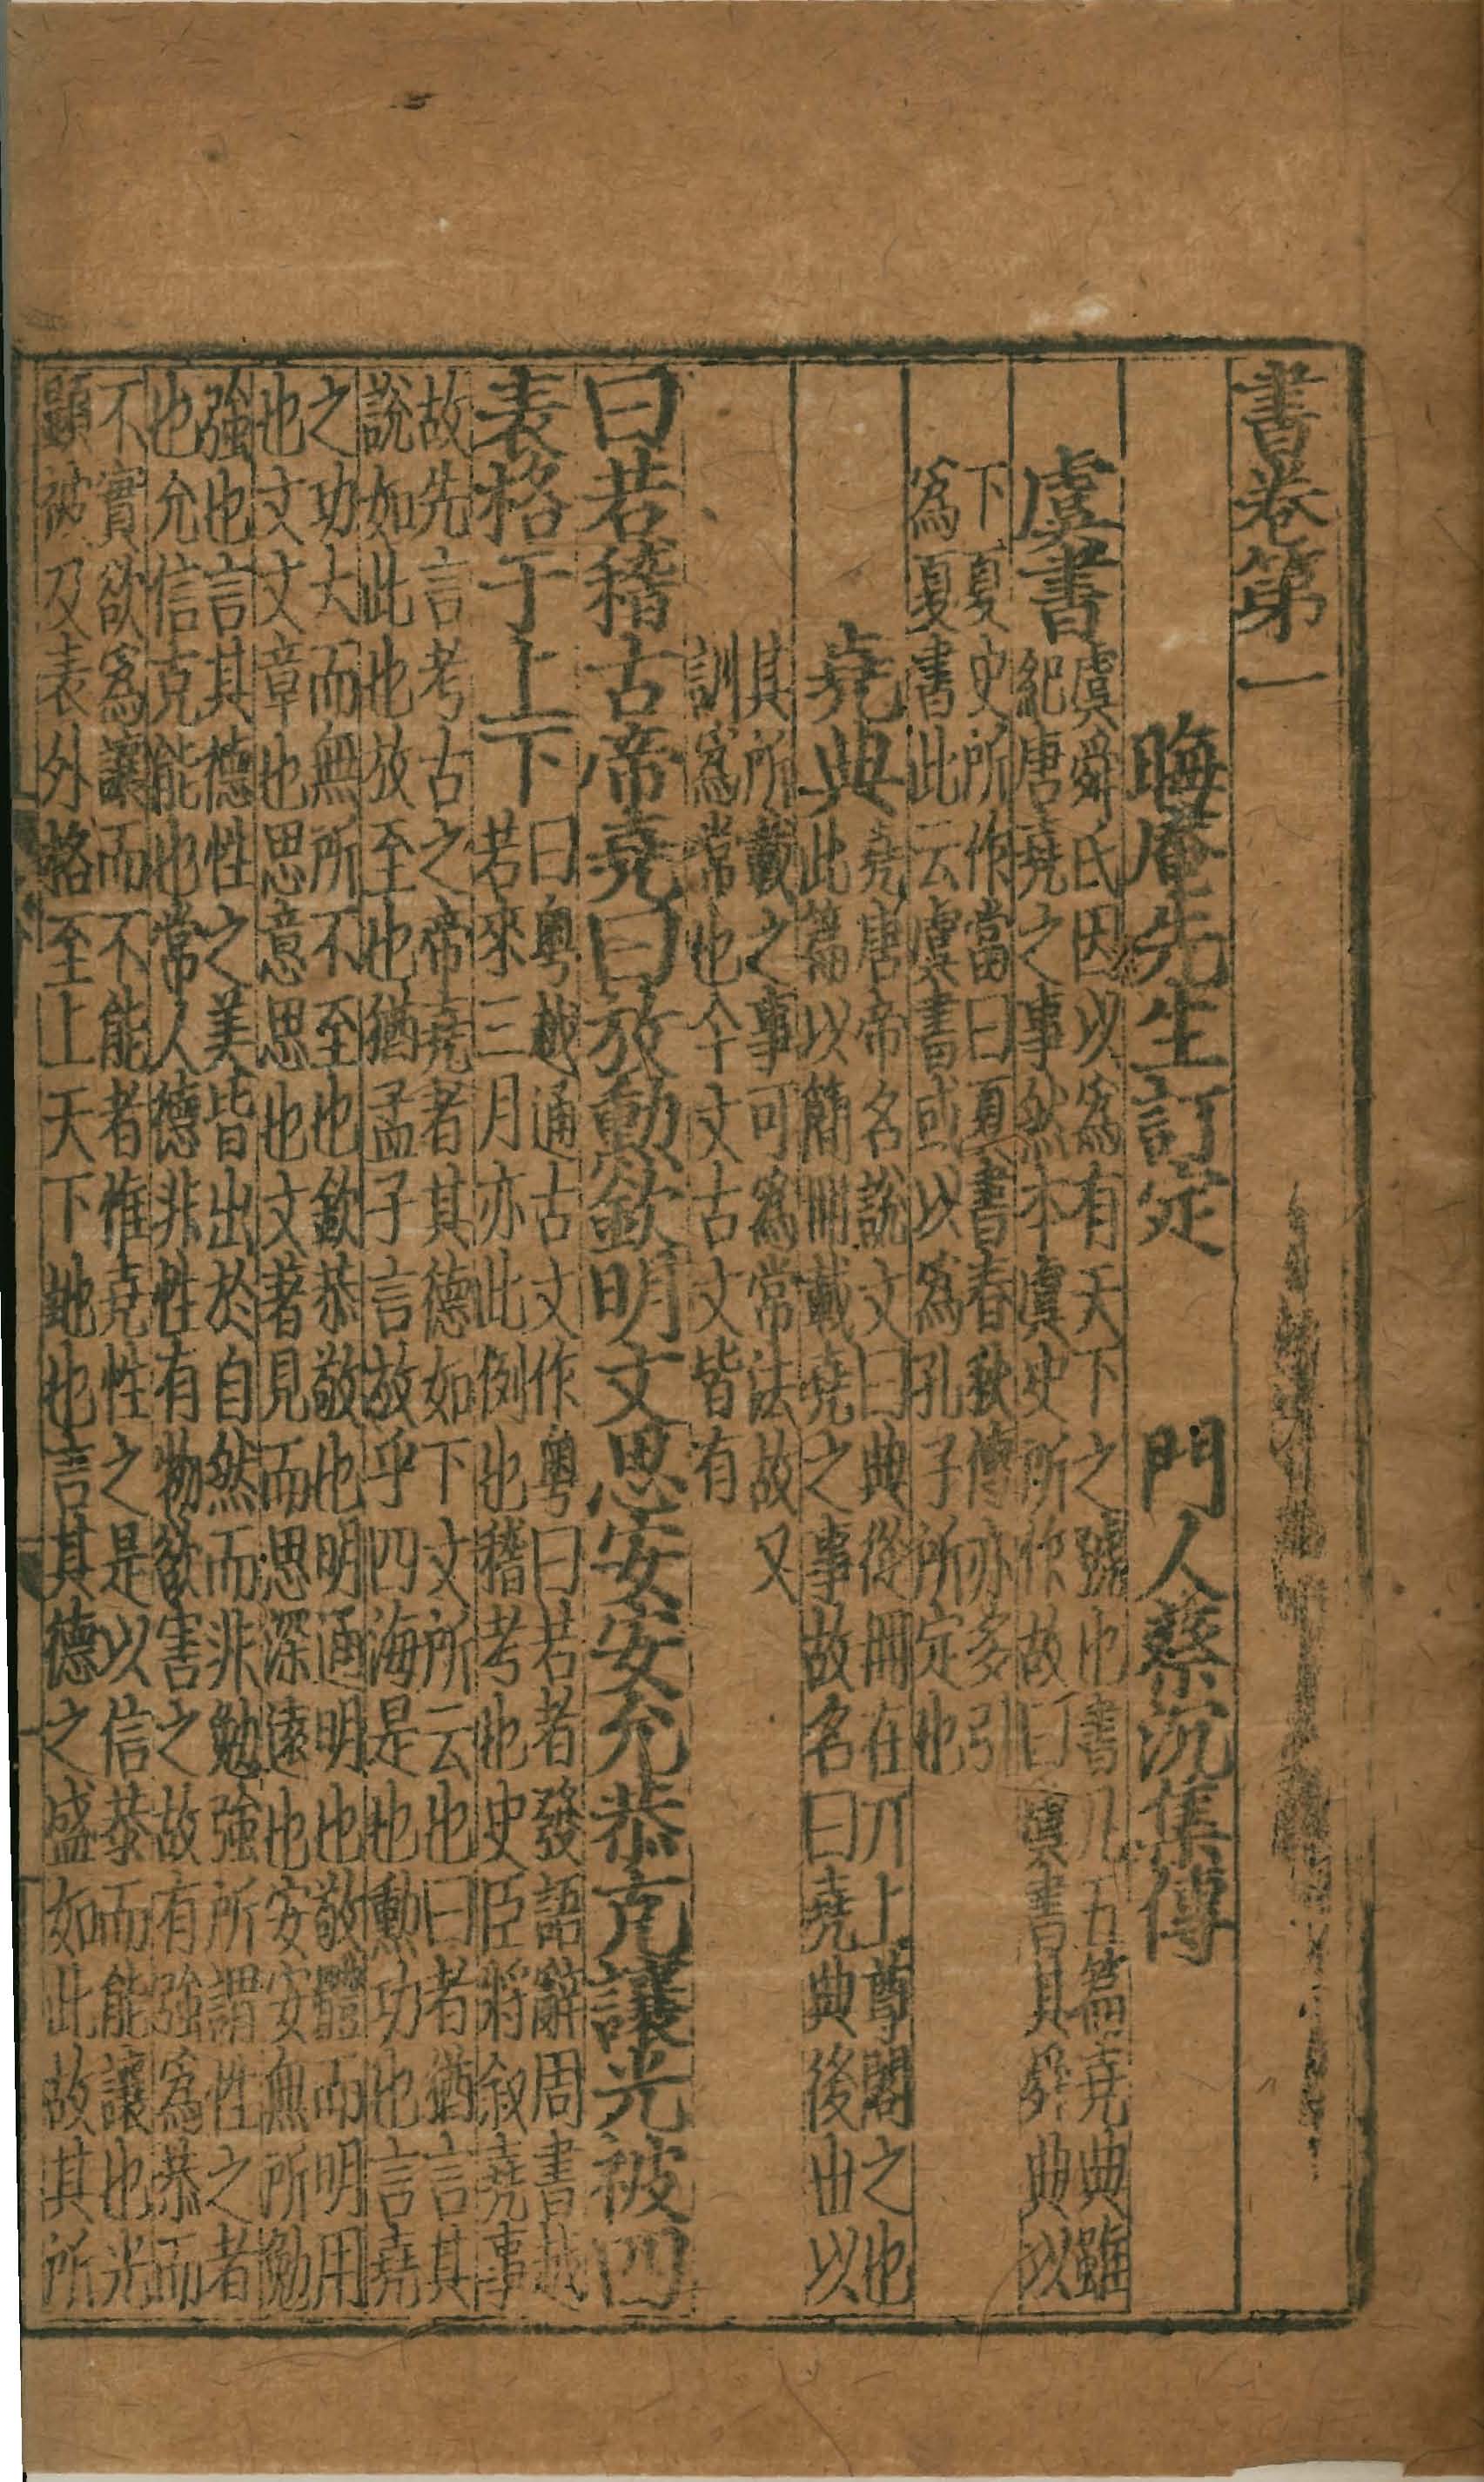 書卷第一
晦庵先生訂定 門人蔡沉集傳
虞書
虞舜氏因以爲有天下之號也書凡五篇堯典雖
紀唐堯之事然本虞史所作故曰虞書其舜典以
下夏史所作當曰夏書春秋傳亦多引
爲夏書此云虞書或以爲孔子所定也
堯典
堯唐帝名說文曰典從冊在丌上尊閣之也
此篇以簡冊載堯之事故名曰堯典後世以
其所載之事可爲常法故又
訓爲常也今文古文皆有
曰若稽古帝堯曰放勳欽明文思安安允恭克讓光被四
表格于上下
曰粤越通古文作粤曰若者發語辭周書越
若來三月亦此例也稽考也史臣將敘堯事
故先言考古之帝堯者其德如下文所云也曰者猶言其
說如此也放至也猶孟子言放乎四海是也勳功也言堯
之功大而無所不至也欽恭敬也明通明也敬體而明用
也文文章也思意思也文著見而思深遠也安安無所勉
強也言其德性之美皆出於自然而非勉強所謂性之者
也允信克能也常人德非性有物欲害之故有強爲恭而
不實欲爲讓而不能者惟堯性之是以信恭而能讓也光
顯被及表外格至上天下地也言其德之盛如此故其所